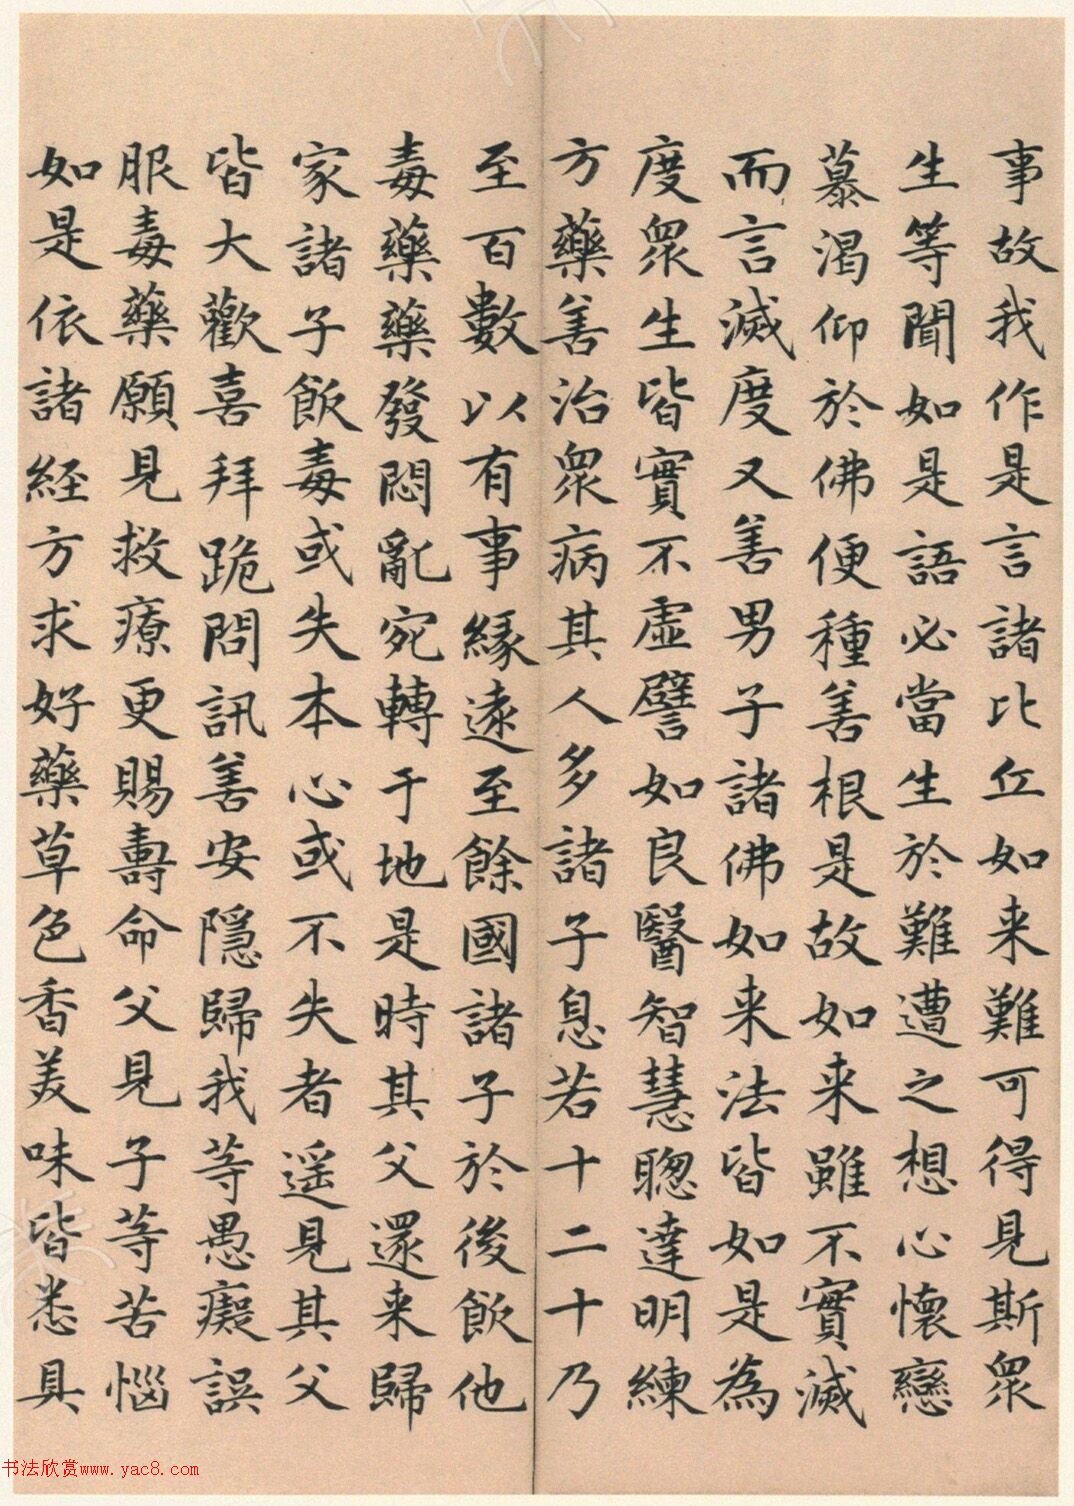 事故我作是言諸比丘如来難可得見斯衆
生等聞如是語必當生於難遭之想心懷戀
慕渴仰於佛便種善根是故如来雖不實滅
而言滅度又善男子諸佛如来法皆如是為
度衆生皆實不虛譬如良醫智慧聰達明練
方藥善治衆病其人多諸子息若十二十乃
至百數以有事緣遠至餘國諸子於後飲他
毒藥藥發悶亂宛轉于地是時其父還来歸
家諸子飲毒或失本心或不失者遥見其父
皆大歡喜拜跪問訊善安隱歸我等愚癡誤
服毒藥願見救療更賜壽命父見子等苦惱
如是依諸經方求好藥草色香美味皆悉具
书法欣赏www.yac8.com